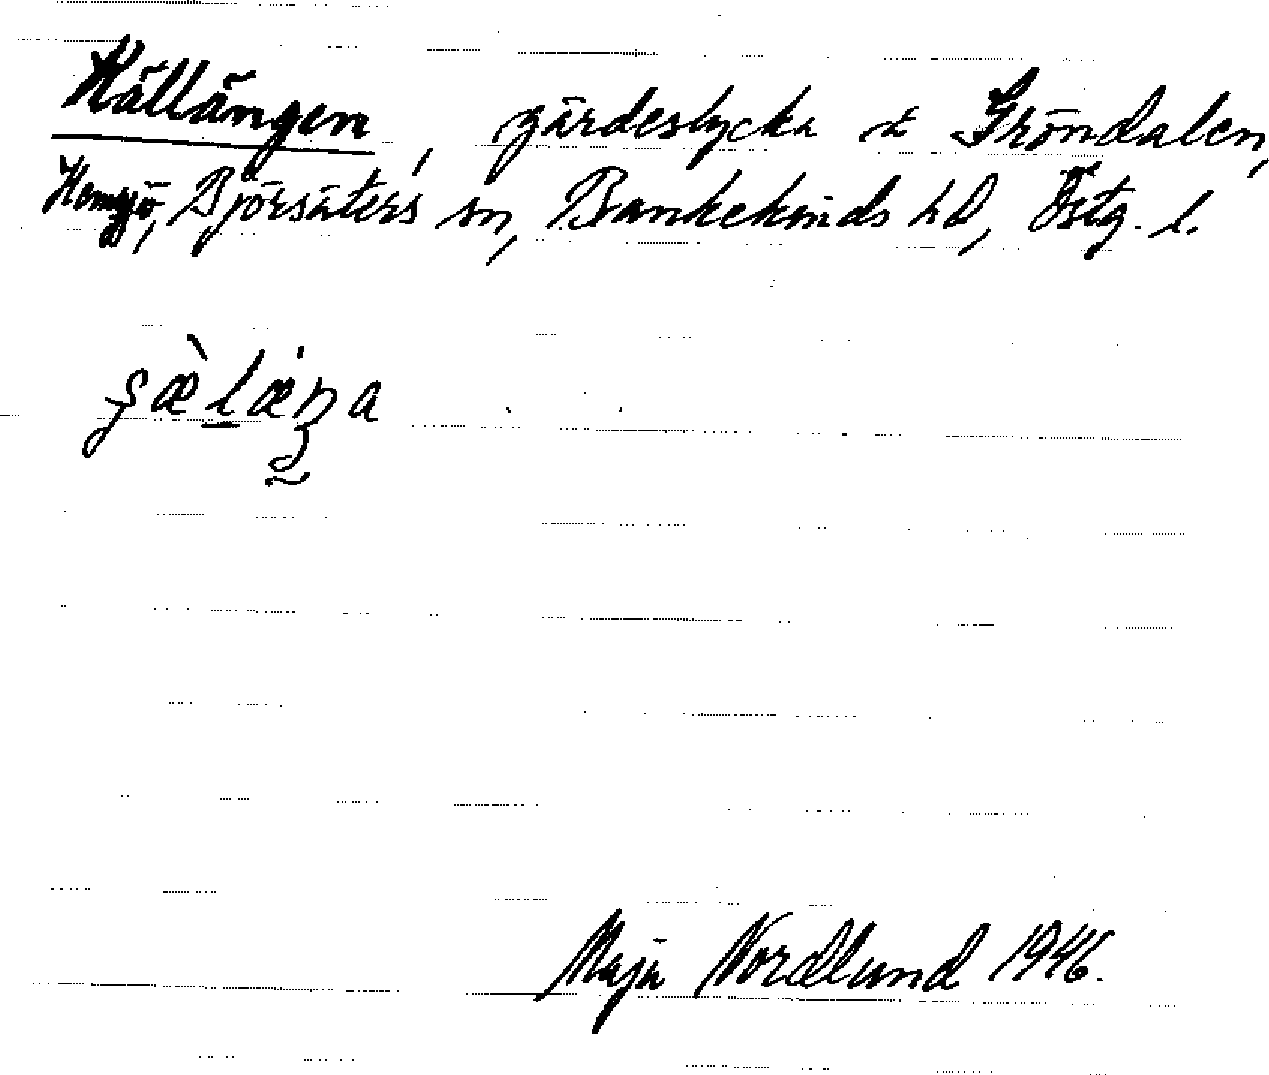 Källängen, gärdeslycka å Gröndalen,
Hemsjö, Björsäters sn, Bankekinds hd, Östg. l.
Maja Nordlund 1946.